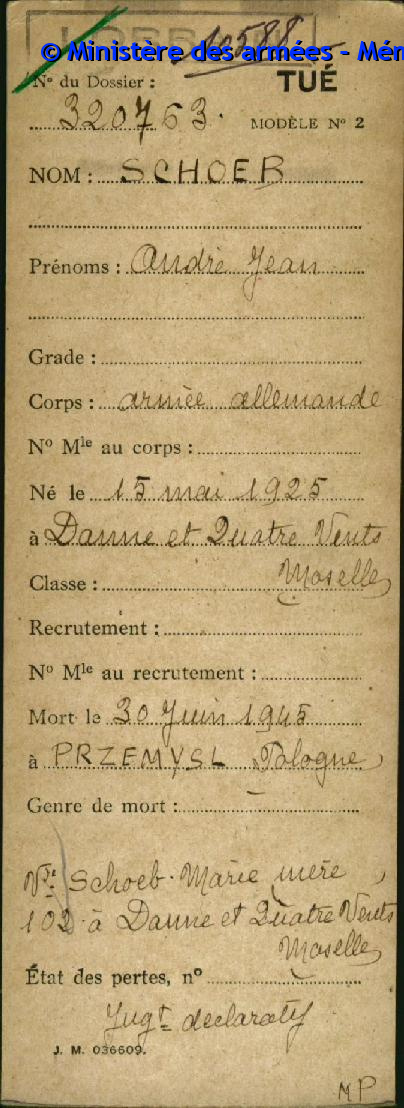 10588
© Ministère des armées - Mém
N° du Dossier : TUÉ
320763. MODÈLE N° 2
NOM : SCHOEB
Prénoms : André Jean
Grade :
Corps : armée allemande
N° Mle au corps :
Né le 15 mai 1925
à Danne et Quatre Vents
Moselle
Classe :
Recrutement :
N° Mle au recrutement :
Mort le 30 Juin 1945
à PRZEMYSL Pologne
Genre de mort :
Vve Schoeb Marie mère
102 à Danne et Quatre Vents
Moselle
État des pertes, n°
Jugt déclaratif
J. M. 036609.
MP